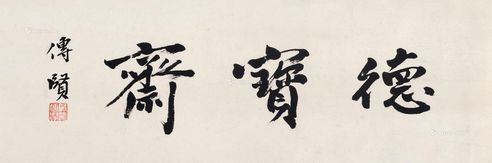 德寶齋
傅賢